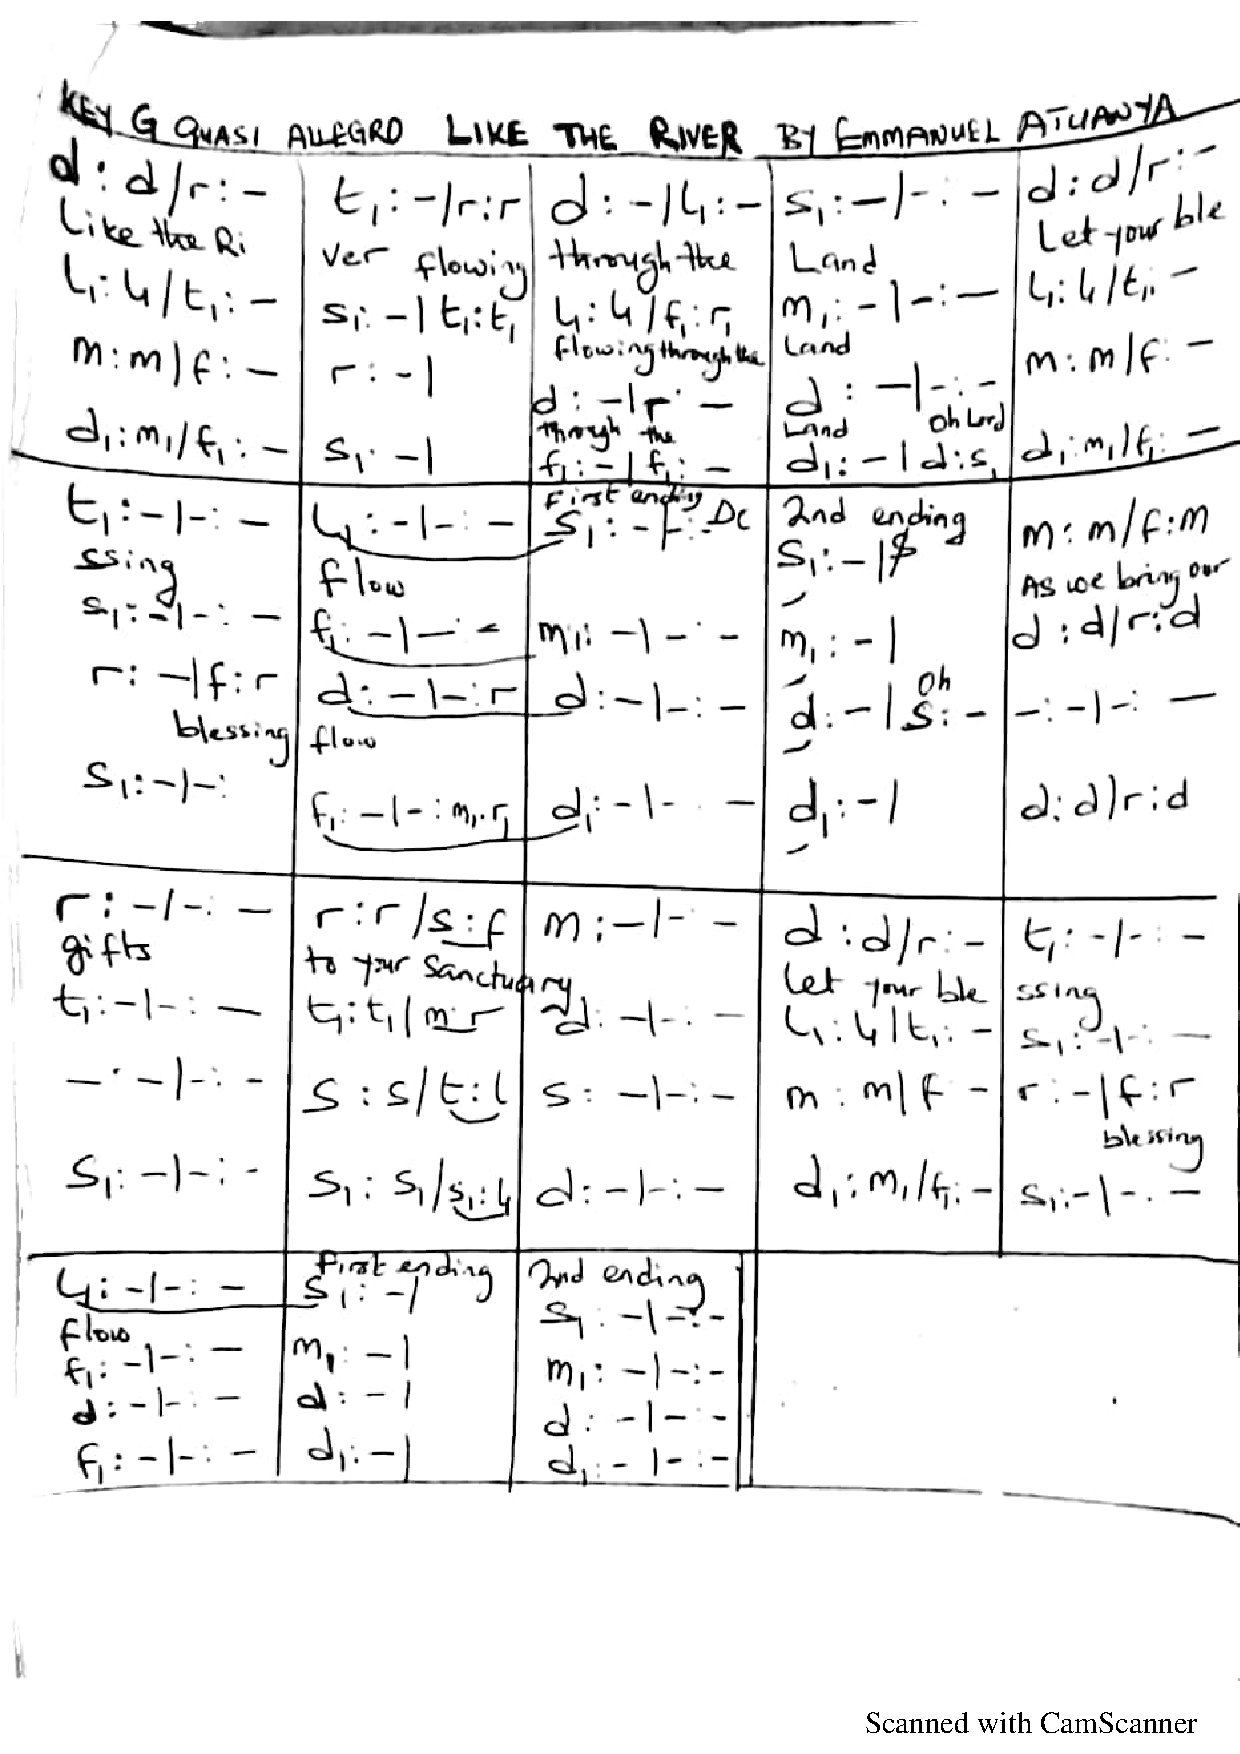 KEY G QUASI ALLEGRO LIKE THE RIVER BY EMMANUEL ATUANYA
d : d / r : -
Like the Ri
l₁ : l₁ / t₁ : -
m : m / f : -
d₁ : m₁ / f₁ : -
t₁ : - / r : r
ver flowing
s₁ : - | t₁ : t₁
r : - |
s₁ : - |
d : - / l₁ : -
through the
l₁ : l₁ / f₁ : r₁
flowing through the
d : - | r : -
through the
f₁ : - | f₁ : -
s₁ : - | - : -
Land
m₁ : - | - : -
Land
d : - | - : -
Land Oh Lord
d₁ : - | d : s₁
d : d / r : -
Let your ble
l₁ : l₁ / t₁ : -
m : m / f : -
d₁ : m₁ / f₁ : -
t₁ : - | - : -
ssing
s₁ : - | - : -
r : - | f : r
blessing
s₁ : - | - :
l₁ : - | - : -
flow
f₁ : - | - : -
d : - | - : r
flow
f₁ : - | - : m₁ . r₁
first ending
s₁ : - | - : - DC
m₁ : - | - : -
d : - | - : -
d₁ : - | - : -
2nd ending
s₁ : - |
m₁ : - |
Oh
d : - | s : -
d₁ : - |
m : m / f : m
As we bring our
d : d / r : d
- : - | - : -
d : d / r : d
r : - / - : -
gifts
t₁ : - | - : -
- : - | - : -
s₁ : - | - : -
r : r / s : f
to your Sanctuary
t₁ : t₁ | m : r
s : s / t : l
s₁ : s₁ / s₁ : l₁
m : - | - : -
d : - | - : -
s : - | - : -
d : - | - : -
d : d / r : -
Let your ble
l₁ : l₁ / t₁ : -
m : m | f -
d₁ : m₁ / f₁ : -
t₁ : - | - : -
ssing
s₁ : - | - : -
r : - | f : r
blessing
s₁ : - | - : -
l₁ : - | - : -
flow
f₁ : - | - : -
d : - | - : -
f₁ : - | - : -
first ending
s₁ : - |
m₁ : - |
d : - |
d₁ : - |
2nd ending
s₁ : - | - : -
m₁ : - | - : -
d : - | - : -
d₁ : - | - : -
Scanned with CamScanner